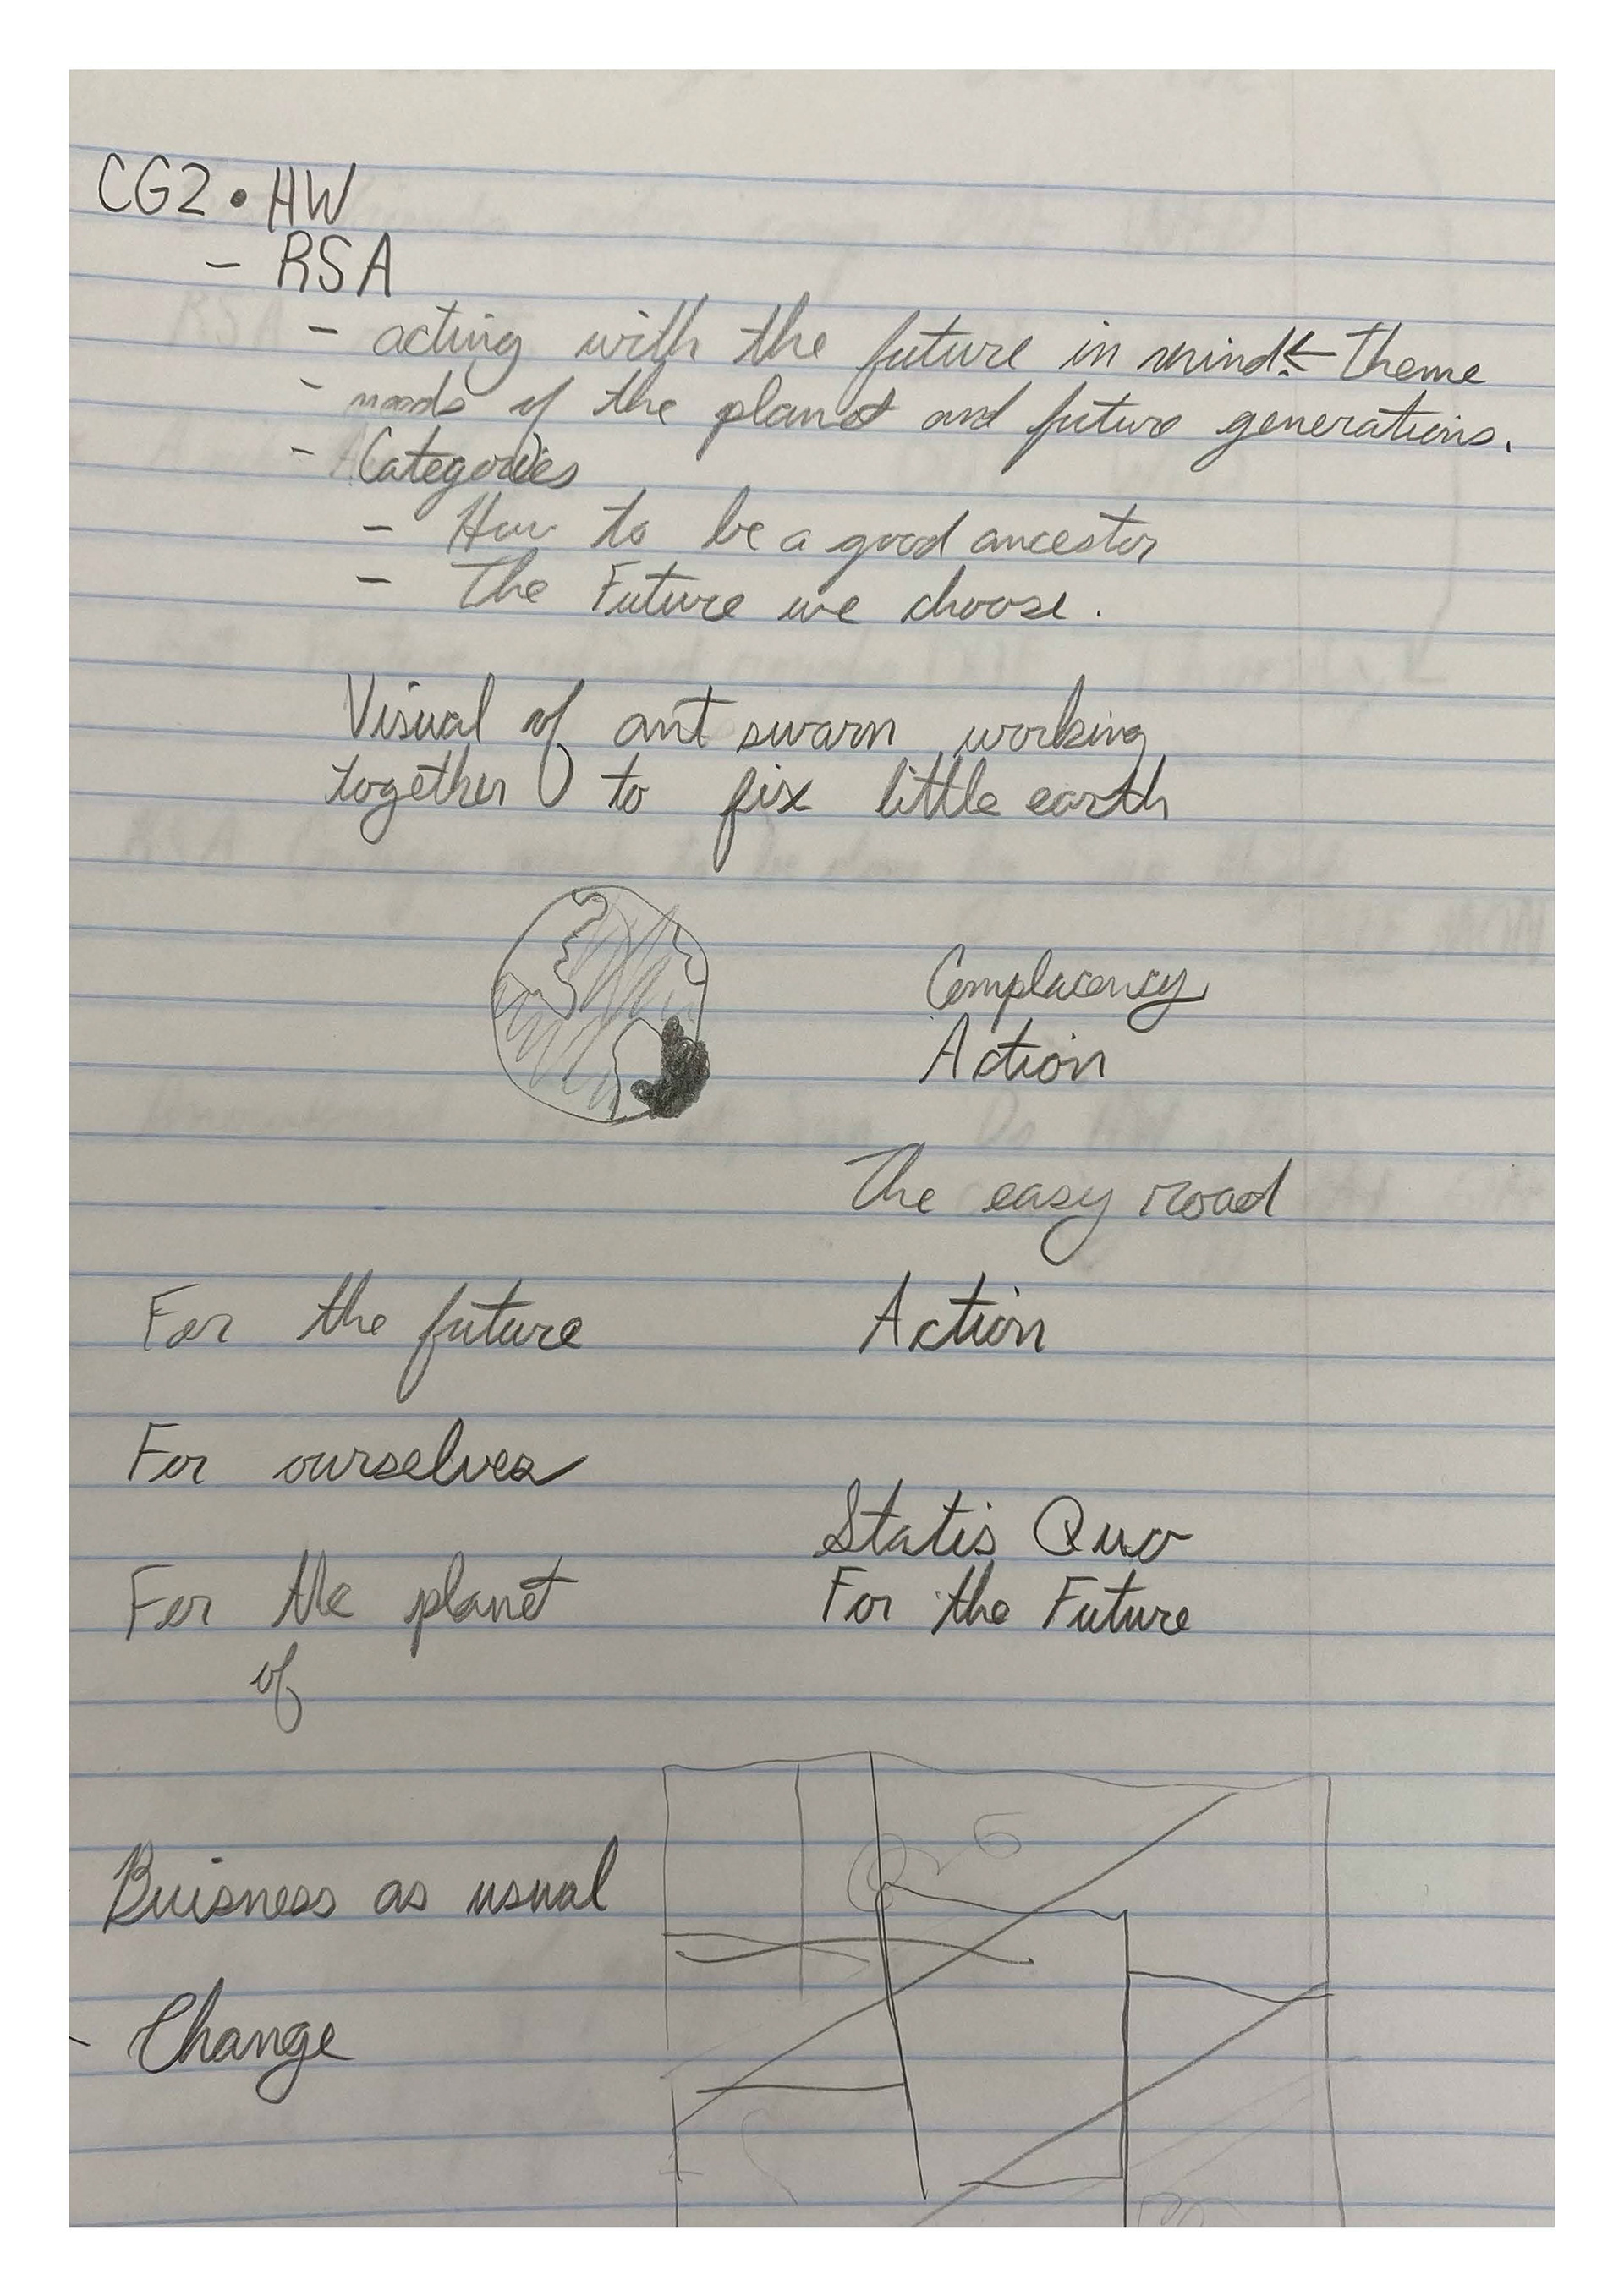 CG2 • HW
- RSA
- acting with the future in mind! ← Theme
- needs of the planet and future generations.
- Categories
- How to be a good ancestor
- The Future we choose.
Visual of ant swarm working
together to fix little earth
Complacency
Action
The easy road
For the future
Action
For ourselves
Statis Quo
For the planet
For the Future
of
Buisness as usual
- Change